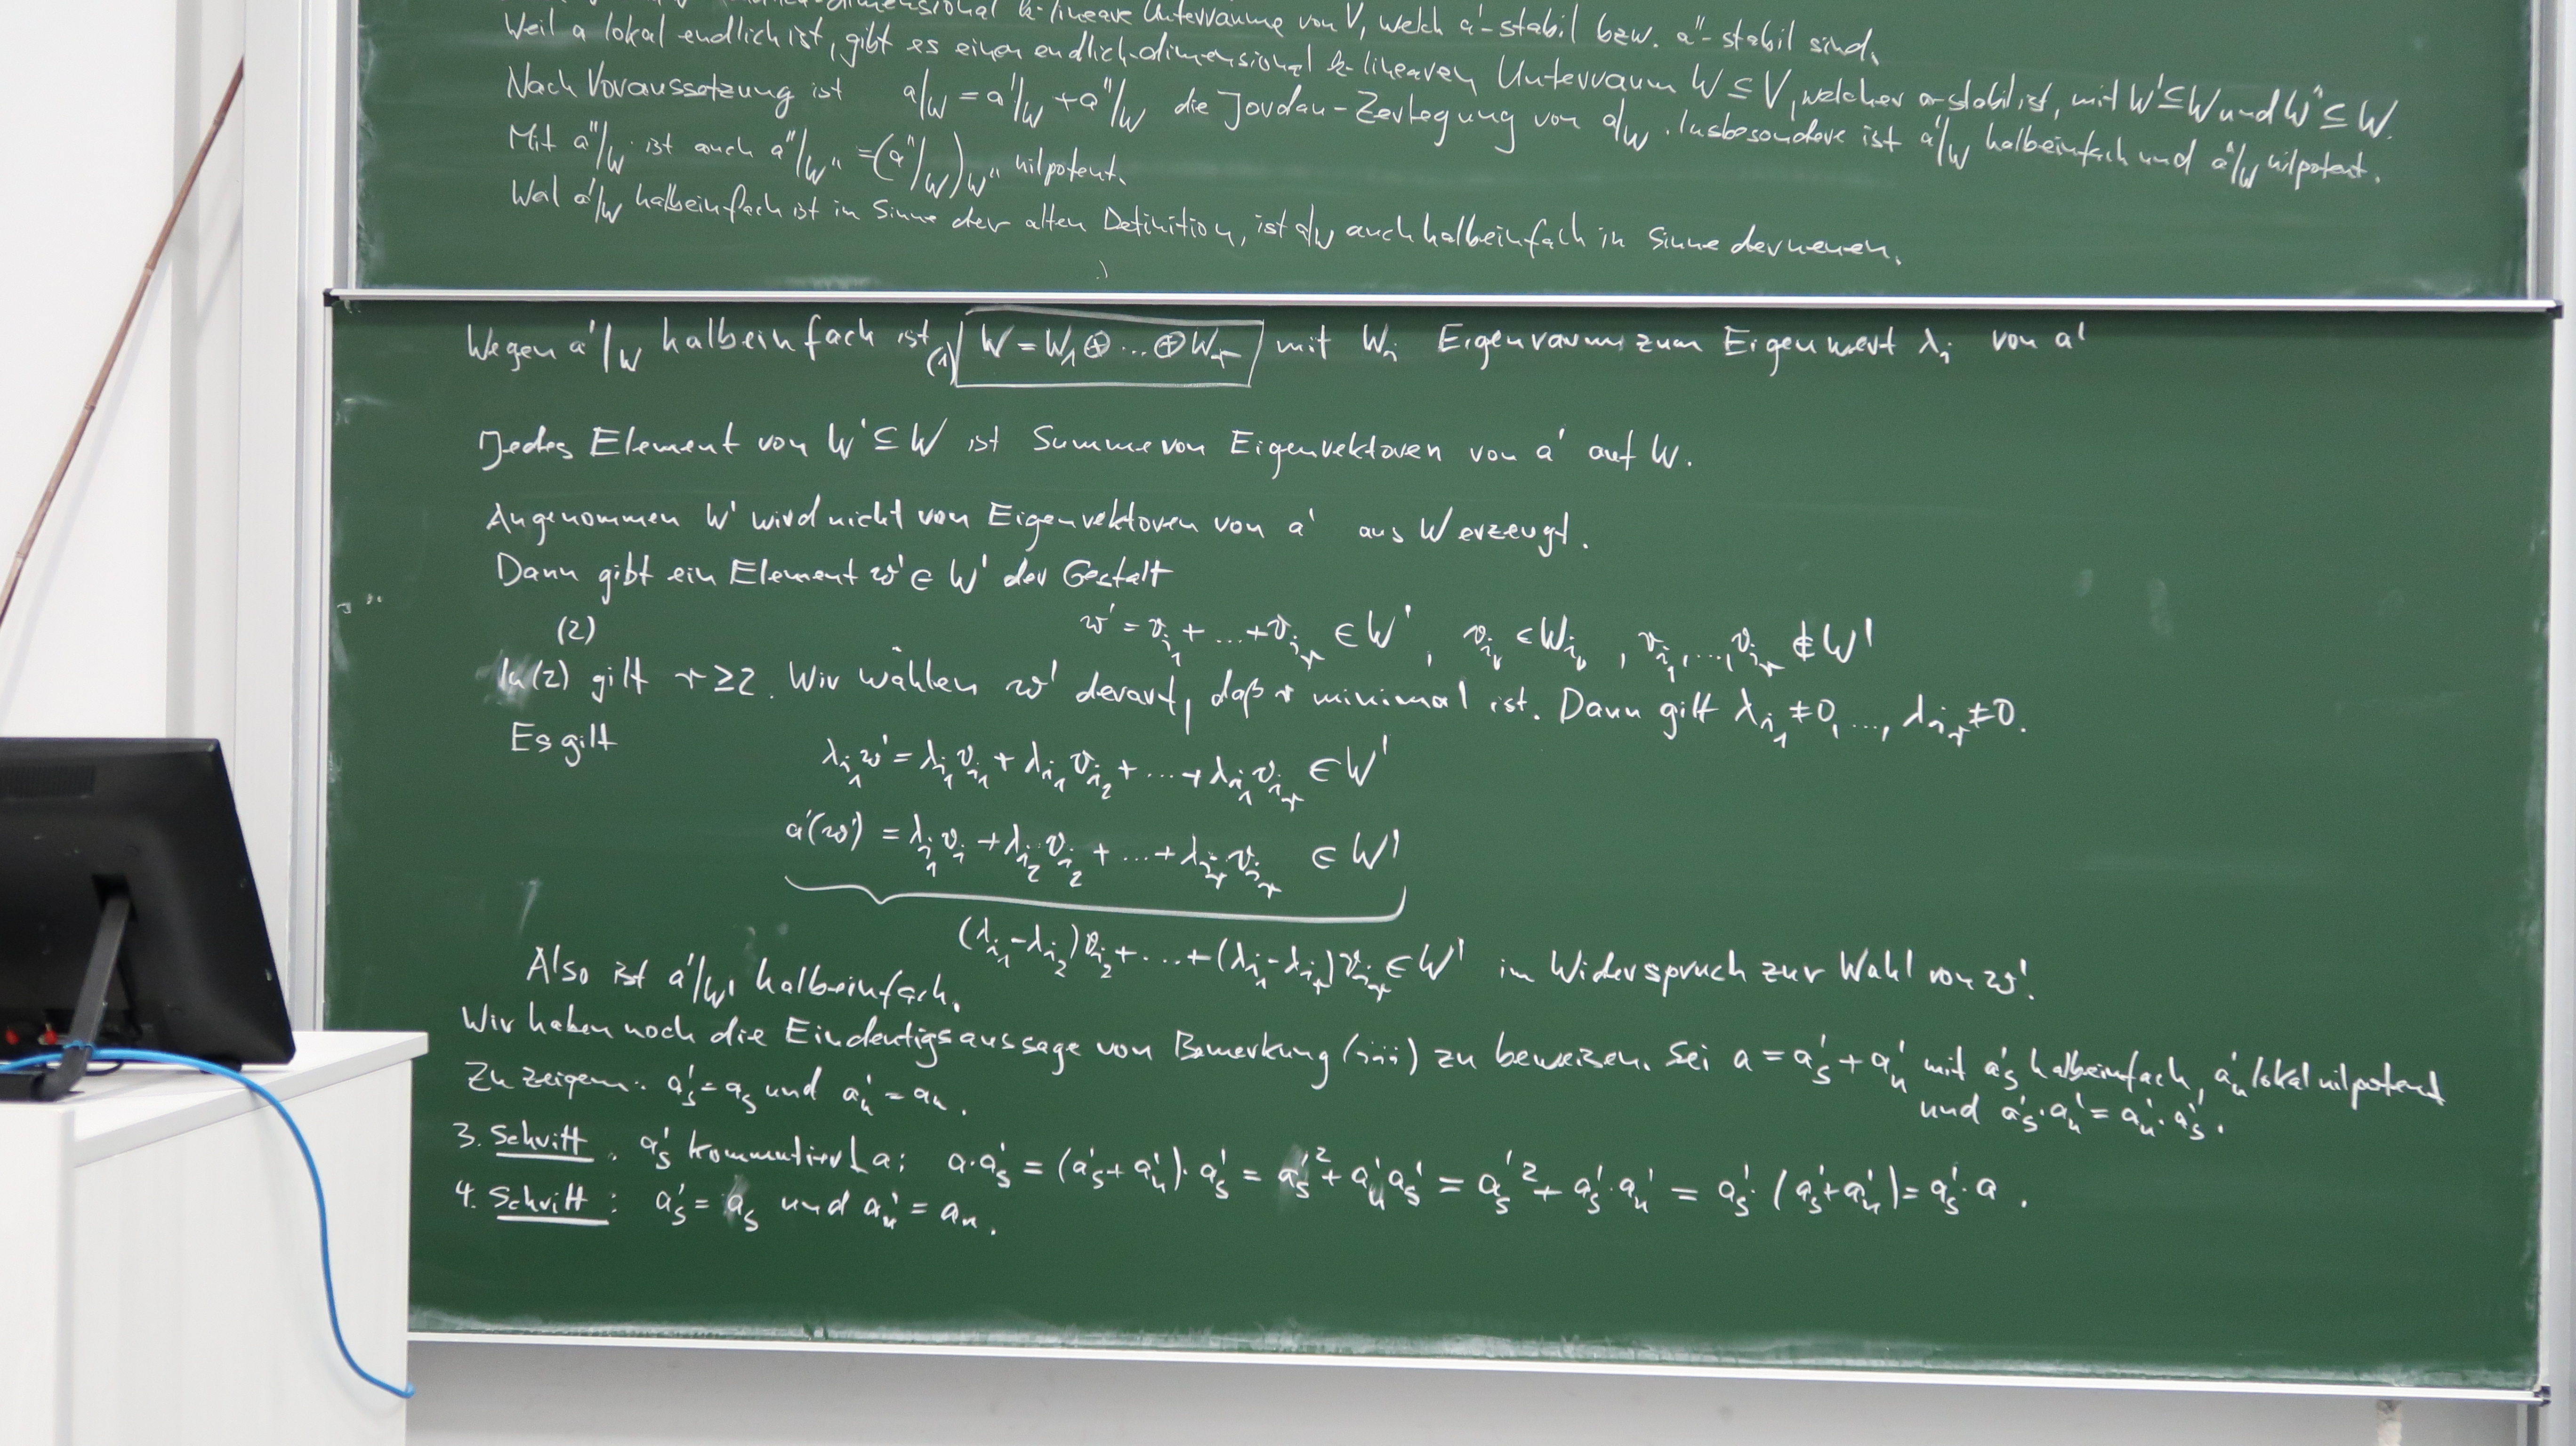 -dimensional k-lineare Unterräume von V, welch a'-stabil bzw. a''-stabil sind.
Weil a lokal endlich ist, gibt es einen endlich-dimensional k-linearen Unterraum W ⊆ V, welcher a-stabil ist, mit W' ⊆ W und W'' ⊆ W.
Nach Voraussetzung ist a|W = a'|W + a''|W die Jordan-Zerlegung von a|W. Insbesondere ist a'|W halbeinfach und a''|W nilpotent.
Mit a''|W ist auch a''|W'' = (a''|W)W'' nilpotent.
Weil a'|W halbeinfach ist in Sinne der alten Definition, ist a|W auch halbeinfach in Sinne der neuen.
Wegen a'|W halbeinfach ist (1) W = W₁ ⊕ ... ⊕ Wᵣ mit Wᵢ Eigenraum zum Eigenwert λᵢ von a'
Jedes Element von W' ⊆ W ist Summe von Eigenvektoren von a' auf W.
Angenommen W' wird nicht von Eigenvektoren von a' aus W erzeugt.
Dann gibt ein Element w' ∈ W' der Gestalt
(2) w' = v_{i₁} + ... + v_{iᵣ} ∈ W', v_{iᵥ} ∈ W_{iᵥ}, v_{i₁}, ..., v_{iᵣ} ∉ W'
In (2) gilt r ≥ 2. Wir wählen w' derart, daß r minimal ist. Dann gilt λ_{i₁} ≠ 0, ..., λ_{iᵣ} ≠ 0.
Es gilt
λ_{i₁} w' = λ_{i₁} v_{i₁} + λ_{i₁} v_{i₂} + ... + λ_{i₁} v_{iᵣ} ∈ W'
a'(w') = λ_{i₁} v_{i₁} + λ_{i₂} v_{i₂} + ... + λ_{iᵣ} v_{iᵣ} ∈ W'
(λ_{i₁} - λ_{i₂}) v_{i₂} + ... + (λ_{i₁} - λ_{iᵣ}) v_{iᵣ} ∈ W' im Widerspruch zur Wahl von w'.
Also ist a'|W' halbeinfach.
Wir haben noch die Eindeutigsaussage von Bemerkung (iii) zu beweisen. Sei a = a's + a'n mit a's halbeinfach, a'n lokal nilpotent
und a's · a'n = a'n · a's.
Zu zeigen: a's = as und a'n = an.
3. Schritt. a's kommutiert a: a · a's = (a's + a'n) · a's = a's² + a'n a's = a's² + a's · a'n = a's · (a's + a'n) = a's · a.
4. Schritt: a's = as und a'n = an.